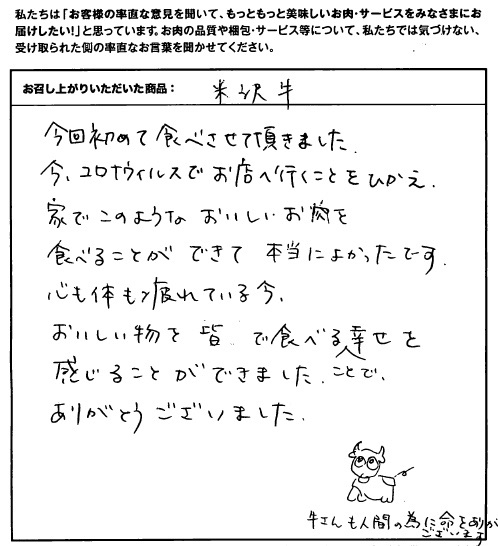 私たちは「お客様の率直な意見を聞いて、もっともっと美味しいお肉・サービスをみなさまにお
届けしたい!」と思っています。お肉の品質や梱包・サービス等について、私たちでは気づけない、
受け取られた側の率直なお言葉を聞かせてください。
お召し上がりいただいた商品： 米沢牛
今回初めて食べさせて頂きました.
今、コロナウィルスでお店へ行くことをひかえ.
家でこのようなおいしいお肉を
食べることができて 本当によかったです.
心も体も疲れている今、
おいしい物を皆 で食べる幸せを
ことで、
感じることができました.
ありがとうございました.
牛さんも人間の為に命をありが
ございます